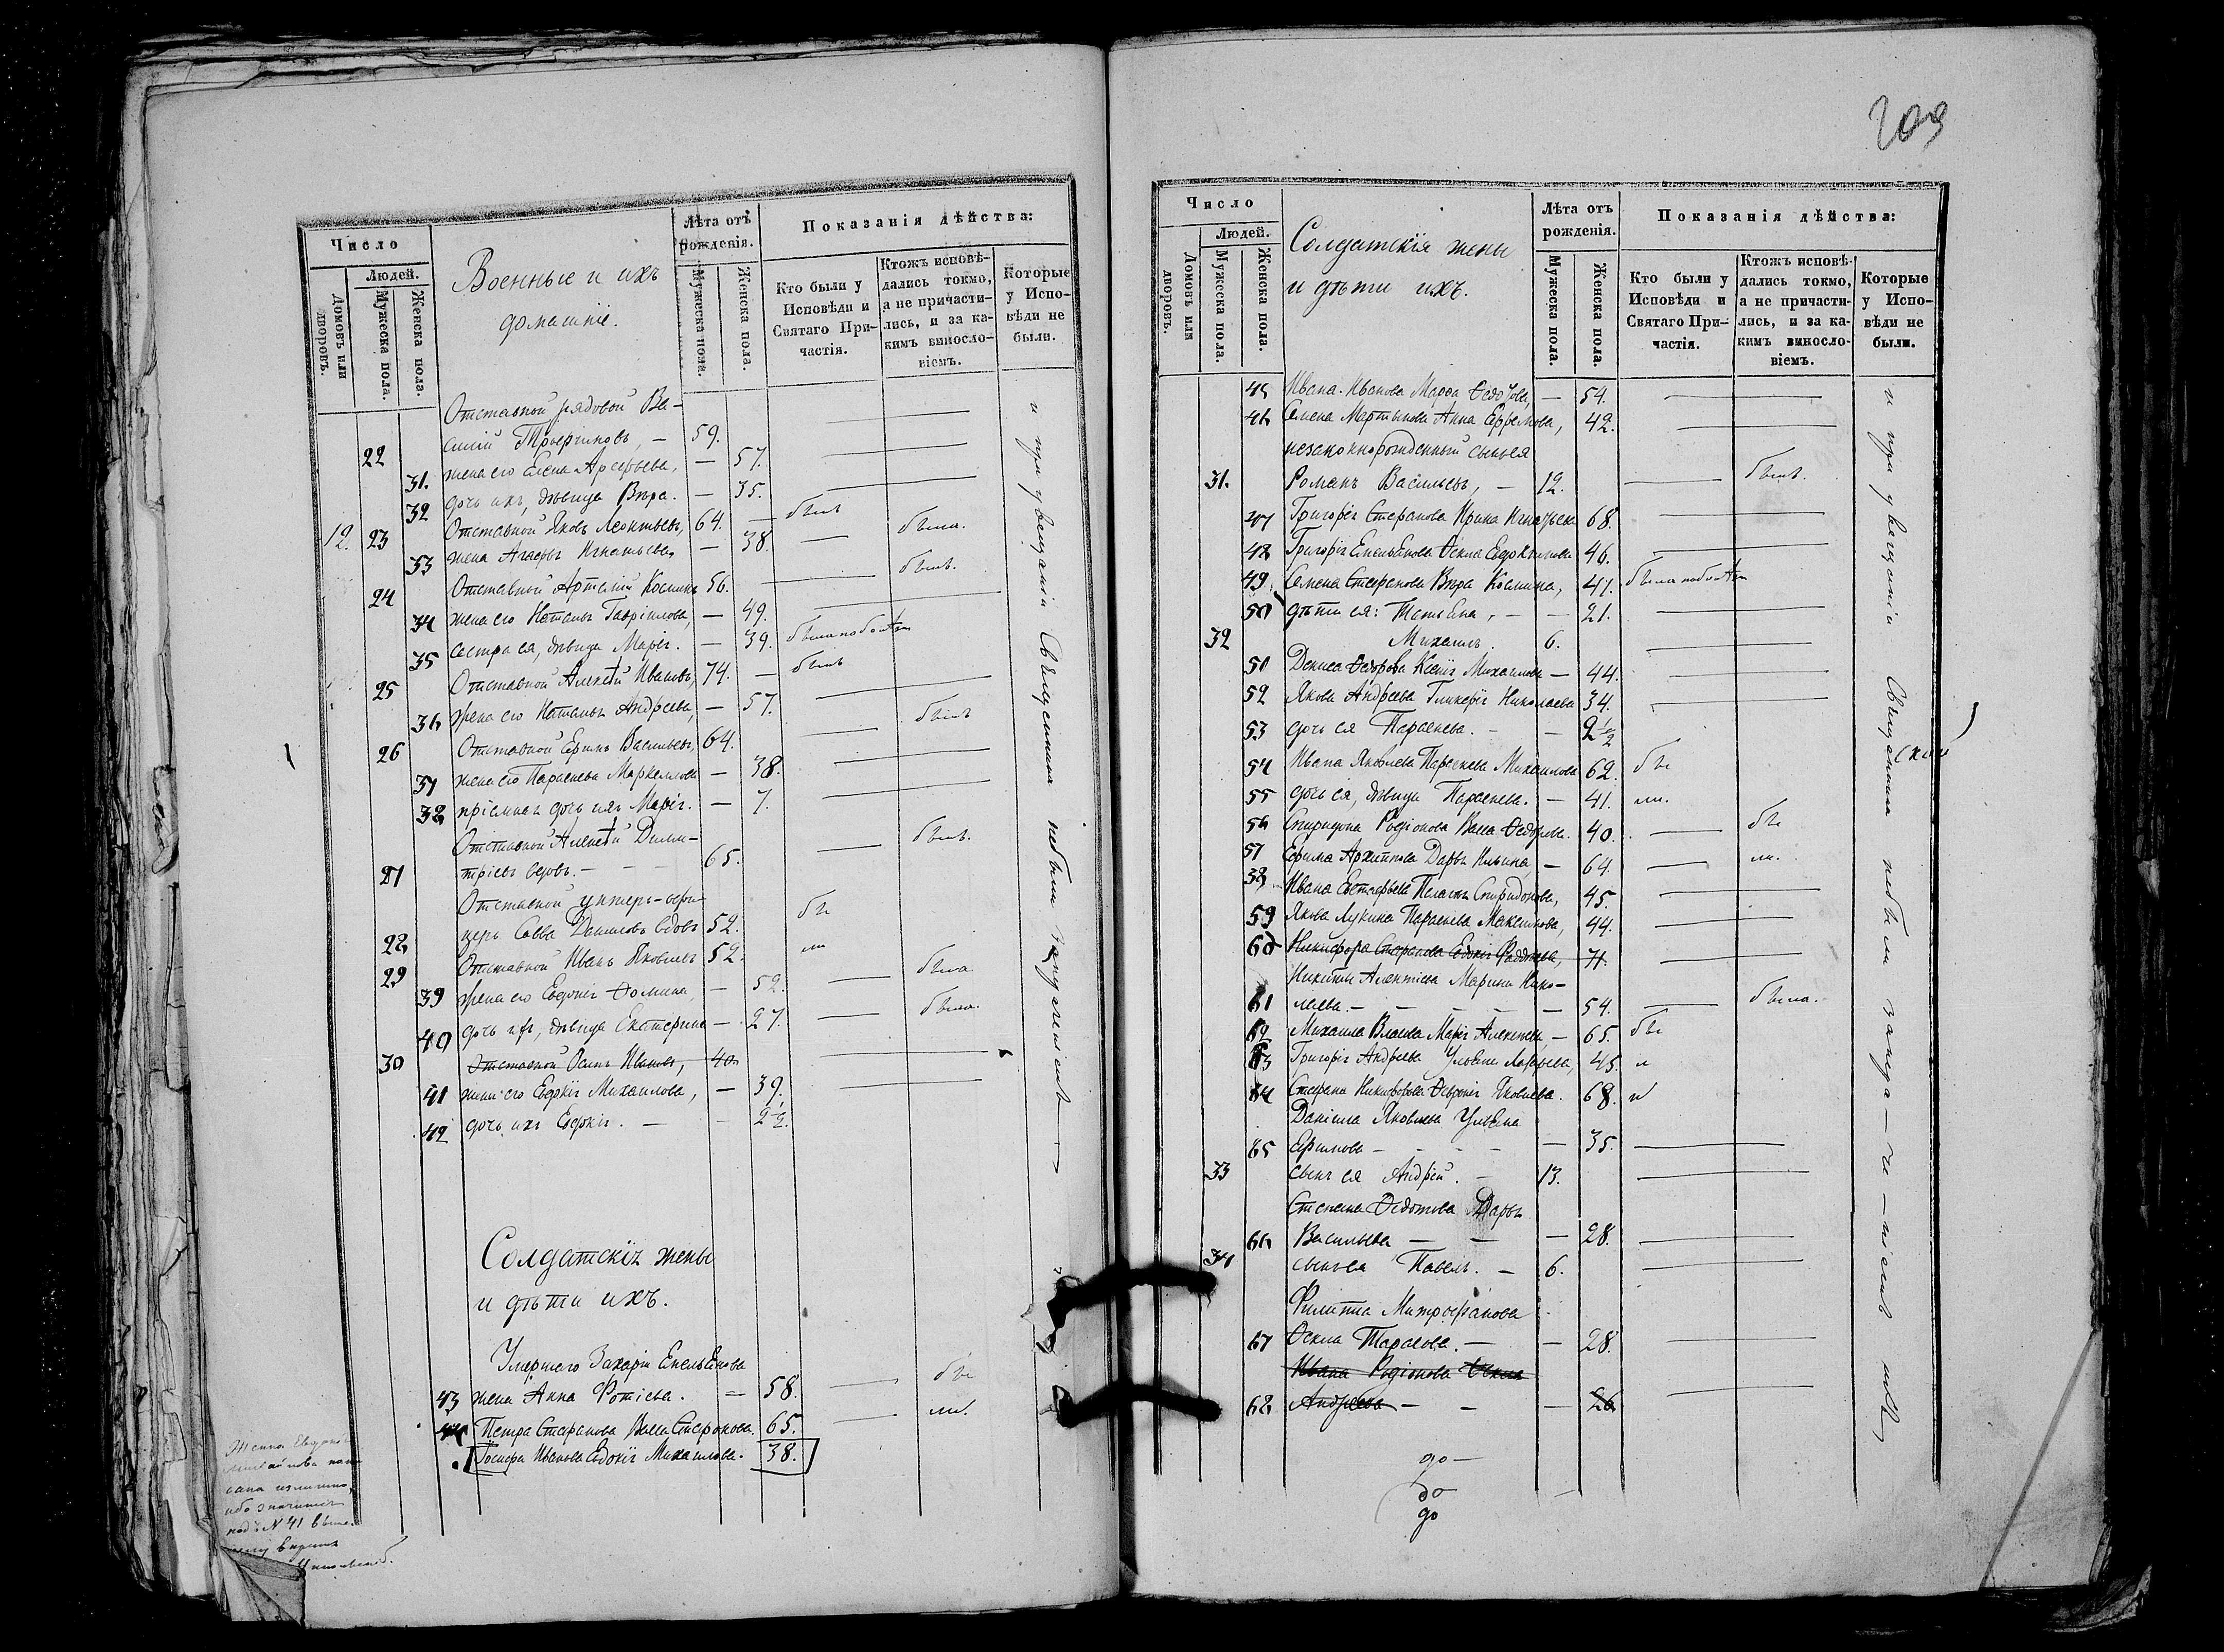 Число
Людей.
Домовъ или дворовъ.
Мужеска пола.
Женска пола.
Военные и ихъ
домашніе.
Лѣта отъ
рожденія.
Мужеска пола.
Женска пола.
Показанія дѣйства:
Кто были у
Исповѣди и
Святаго При-
частія.
Ктожъ исповѣ-
дались токмо,
а не причасти-
лись, и за ка-
кимъ винословіемъ.
Которые
у Испо-
вѣди не
были.
Отставной рядовой Ва-
22 силій — 59.
31. жена его Елена Арефьева, — 57.
32 дочь ихъ, дѣвица Вѣра. — 35.
12. 23 Отставной Яковъ Леонтьевъ, 64. — былъ
33 жена Агафья Игнатьева, — 38. — была.
24 Отставной Артемій Косминъ 56. былъ.
34 жена его Наталья Гаврілова, — 49.
35 сестра ея, дѣвица Марія. — 39. была
25 Отставной Алексѣй Ивановъ, 74. — былъ
36 жена его Наталья Андреева, — 57.
26 Отставной Ефимъ Васильевъ, 64. былъ
37 жена его Параскева Маркеллова — 38.
38 пріемная дочь ихъ Марія. — 7.
Отставной Алексѣй Дими-
27 тріевъ вдовъ. — 65. былъ.
Отставной унтеръ-офи-
28 церъ Савва Даниловъ вдовъ 52.
29 Отставной Иванъ Яковлевъ 52.
39 жена его Евдокія Фомина, — 52. — была
40 дочь ихъ, дѣвица Екатерина — 27. — была.
30 Отставной Осипъ Ивановъ, 40.
41 жена его Евдокія Михаилова, — 39.
42 дочь ихъ Евдокія. — 2½.
и при увѣщаніи Священника небыли
Солдатскія жены
и дѣти ихъ.
Умершаго Захарія Емельянова
43 жена Анна Фотіева. — 58.
44 Петра Стефанова Васса Стефанова. 65.
Іосифа Иванова Евдокія Михаилова. 38.
Жена Евдокія
под № 41
209
Число
Людей.
Домовъ или дворовъ.
Мужеска пола.
Женска пола.
Солдатскія жены
и дѣти ихъ.
Лѣта отъ
рожденія.
Мужеска пола.
Женска пола.
Показанія дѣйства:
Кто были у
Исповѣди и
Святаго При-
частія.
Ктожъ исповѣ-
дались токмо,
а не причасти-
лись, и за ка-
кимъ винословіемъ.
Которые
у Испо-
вѣди не
были.
45 Ивана Иванова Марѳа Ѳедотова, — 54.
46 Семена Мартынова Анна Ефремова, 42.
незаконнорожденный сынъ ея
31. Романъ Васильевъ, — 12. былъ.
47 Григорія Стефанова Ирина Игнатьева 68.
48 Григорія Емельянова Ѳекла Евдокимова 46.
49. Семена Стефанова Вѣра Космина, 41. была
50 дѣти ея: Татьяна, — 21.
32 Михаилъ. 6.
50 Дениса Ѳедорова Ксенія Михаилова — 44.
52 Якова Андреева Гликерія Николаева 34.
53 дочь ея Параскева. — 2½
54 Ивана Яковлева Параскева Михаилова 62.
55 дочь ея, дѣвица Параскева. — 41.
56 Спиридона Родіонова Васса Ѳедорова. 40.
57 Ефима Архиппова Дарья Ильина, — 64.
58 Ивана Пелагея Спиридонова, 45.
59 Якова Лукина Параскева Максимова, 44.
60 Никифора Стефанова Евдокія Фаддеева, 71.
Никиты Алексіева Марина Нико-
61 лаева. — 54. была.
62 Михаила Власова Марія Алексѣева, — 65.
63 Григорія Андреева Ульяна 45.
64 Стефана Никифорова Ѳевронія Яковлева. 68.
Даніила Яковлева Ульяна
65 Ефимова — 35.
33 сынъ ея Андрей. — 13.
Степана Ѳедотова Дарья
66 Васильева — 28.
34 сынъ ея Павелъ. — 6.
Филиппа Митрофанова
67 Ѳекла Тарасова. — 28.
Ивана Родіонова Ѳекла
68 Андреева — 26
и при увѣщаніи Священника небыли
до —
до
до